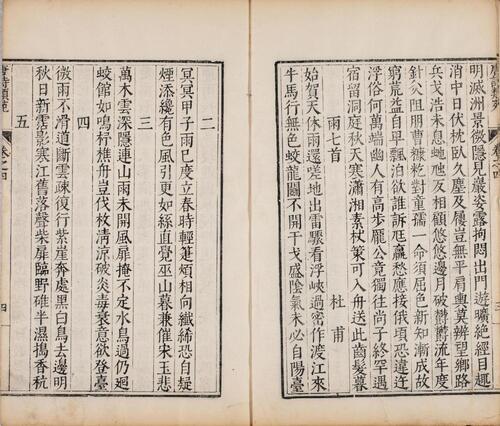 明滅洲景微隱見巖姿露拘悶出門遊曠絕經目趣
消中日伏枕臥久塵及屨豈無平肩輿莫辨望鄉路
兵戈浩未息蛇虺反相顧悠悠邊月破鬱鬱流年度
針灸阻朋曹糠籺對童孺一命須屈色新知漸成故
窮荒益自卑飄泊欲誰訴尫羸愁應接俄頃恐違迕
浮俗何萬端幽人有高步龐公竟獨往尚子終罕遇
宿留洞庭秋天寒瀟湘素杖策可入舟送此齒髮暮
雨七首 杜甫
始賀天休雨還嗟地出雷驟看浮峽過密作渡江來
牛馬行無色蛟龍鬭不開干戈盛陰氣未必自陽臺
二
冥冥甲子雨已度立春時輕箑煩相向纖絺恐自疑
煙添纔有色風引更如絲直覺巫山暮兼催宋玉悲
三
萬木雲深隱連山雨未開風扉掩不定水鳥過仍廻
蛟館如鳴杼樵舟豈伐枚清涼破炎毒衰意欲登臺
四
微雨不滑道斷雲疎復行紫崖奔處黑白鳥去邊明
秋日新霑影寒江舊落聲柴扉臨野碓半濕搗香秔
五
四